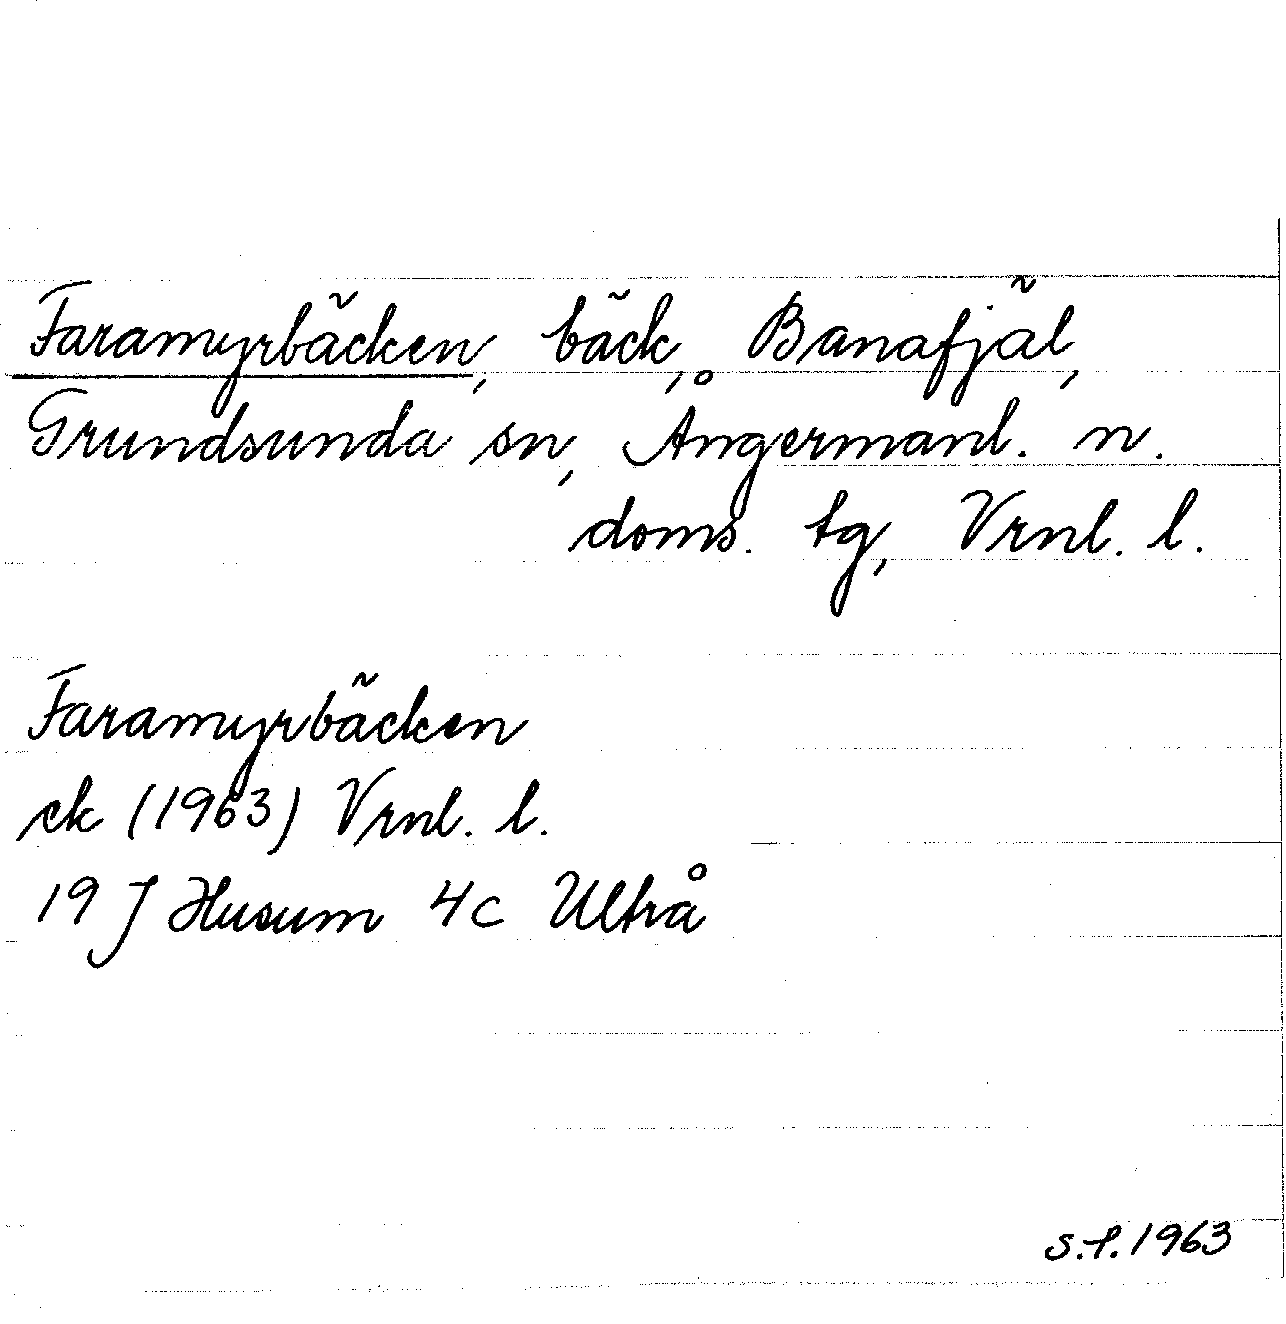 Faramyrbäcken, bäck, Banafjäl,
Grundsunda sn, Ångermanl. n.
doms. tg, Vrnl. l.
Faramyrbäcken
ek (1963) Vrnl. l.
19 J Husum 4c Ultrå
S.P. 1963